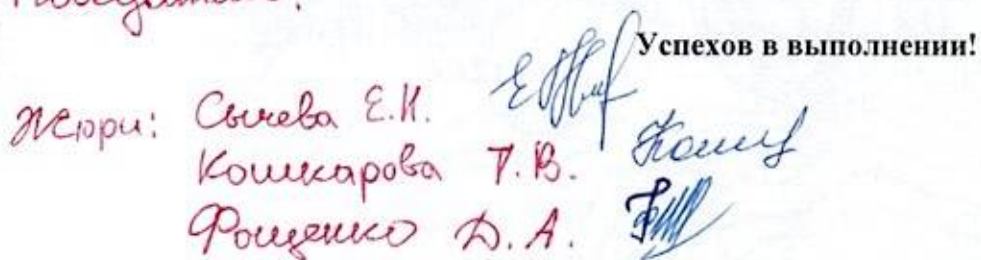 Успехов в выполнении!
Жюри: Сычева Е.Н.
Кошкарова Т.В.
Фощенко Д.А.